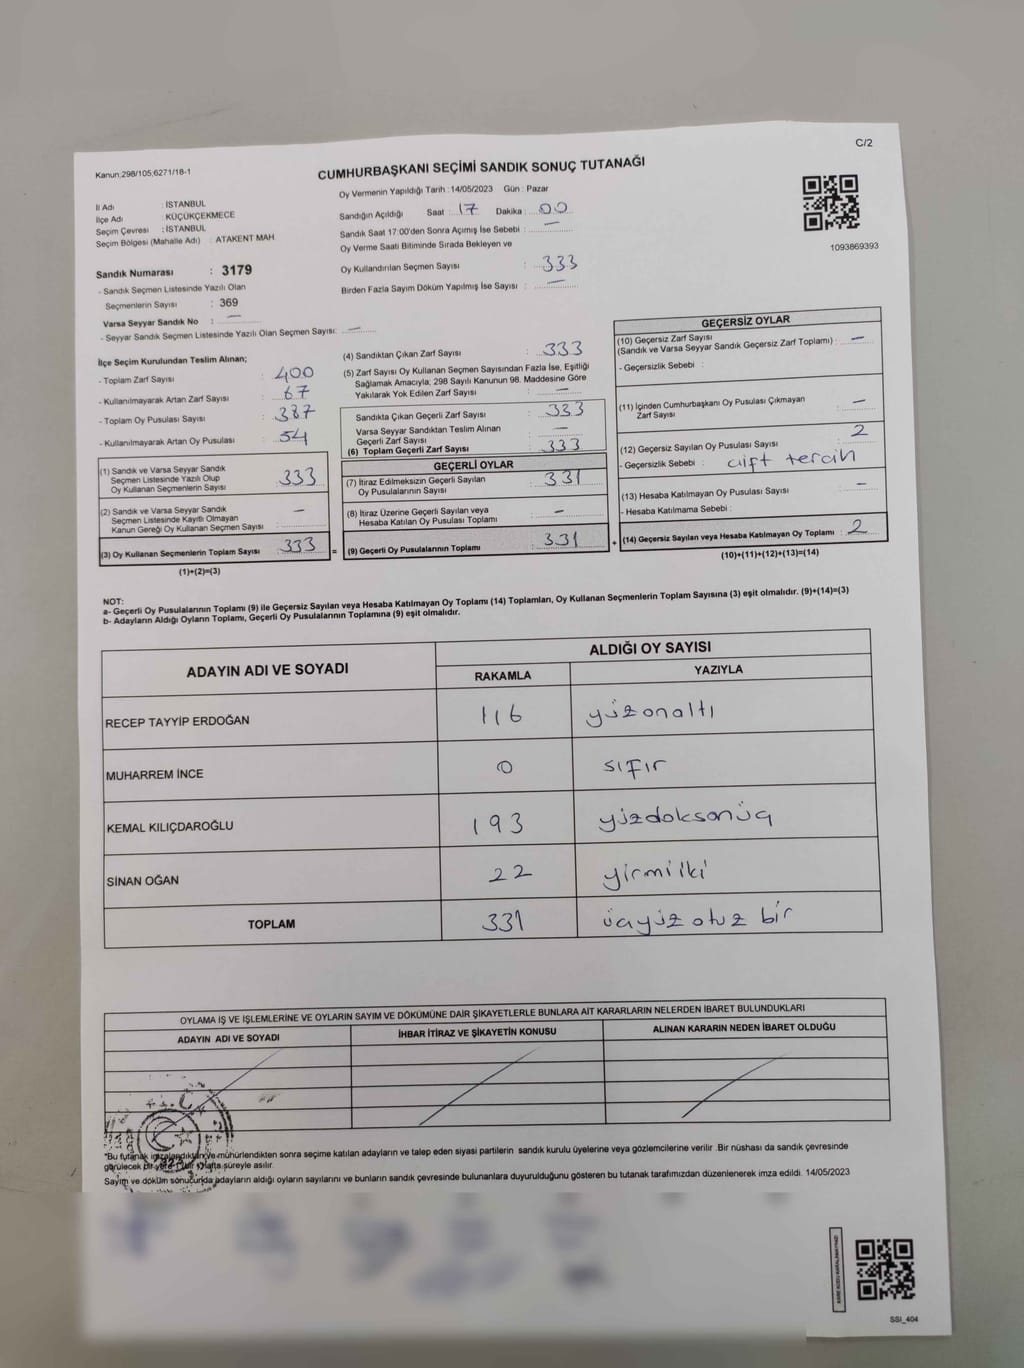 C/2
Kanun;298/105;6271/18-1
CUMHURBAŞKANI SEÇİMİ SANDIK SONUÇ TUTANAĞI
Oy Vermenin Yapıldığı Tarih : 14/05/2023 Gün : Pazar
İl Adı : İSTANBUL
İlçe Adı : KÜÇÜKÇEKMECE
Seçim Çevresi : İSTANBUL
Seçim Bölgesi (Mahalle Adı) : ATAKENT MAH
Sandığın Açıldığı Saat : 17 Dakika : 00
Sandık Saat 17:00'den Sonra Açımış İse Sebebi : —
Oy Verme Saati Bitiminde Sırada Bekleyen ve
Oy Kullandırılan Seçmen Sayısı : 333
Birden Fazla Sayım Döküm Yapılmış İse Sayısı : —
1093869393
Sandık Numarası : 3179
- Sandık Seçmen Listesinde Yazılı Olan
Seçmenlerin Sayısı : 369
Varsa Seyyar Sandık No : —
- Seyyar Sandık Seçmen Listesinde Yazılı Olan Seçmen Sayısı: —
İlçe Seçim Kurulundan Teslim Alınan;
- Toplam Zarf Sayısı : 400
- Kullanılmayarak Artan Zarf Sayısı : 67
- Toplam Oy Pusulası Sayısı : 387
- Kullanılmayarak Artan Oy Pusulası : 54
(1) Sandık ve Varsa Seyyar Sandık
Seçmen Listesinde Yazılı Olup
Oy Kullanan Seçmenlerin Sayısı : 333
(2) Sandık ve Varsa Seyyar Sandık
Seçmen Listesinde Kayıtlı Olmayan
Kanun Gereği Oy Kullanan Seçmen Sayısı : —
(3) Oy Kullanan Seçmenlerin Toplam Sayısı : 333 =
(1)+(2)=(3)
(4) Sandıktan Çıkan Zarf Sayısı : 333
(5) Zarf Sayısı Oy Kullanan Seçmen Sayısından Fazla İse, Eşitliği
Sağlamak Amacıyla; 298 Sayılı Kanunun 98. Maddesine Göre
Yakılarak Yok Edilen Zarf Sayısı : —
Sandıkta Çıkan Geçerli Zarf Sayısı : 333
Varsa Seyyar Sandıktan Teslim Alınan
Geçerli Zarf Sayısı : —
(6) Toplam Geçerli Zarf Sayısı : 333
GEÇERLİ OYLAR
(7) İtiraz Edilmeksizin Geçerli Sayılan
Oy Pusulalarının Sayısı : 331
(8) İtiraz Üzerine Geçerli Sayılan veya
Hesaba Katılan Oy Pusulası Toplamı : —
(9) Geçerli Oy Pusulalarının Toplamı : 331 +
GEÇERSİZ OYLAR
(10) Geçersiz Zarf Sayısı
(Sandık ve Varsa Seyyar Sandık Geçersiz Zarf Toplamı) : —
- Geçersizlik Sebebi :
(11) İçinden Cumhurbaşkanı Oy Pusulası Çıkmayan
Zarf Sayısı : —
(12) Geçersiz Sayılan Oy Pusulası Sayısı : 2
- Geçersizlik Sebebi : çift tercih
(13) Hesaba Katılmayan Oy Pusulası Sayısı : —
- Hesaba Katılmama Sebebi :
(14) Geçersiz Sayılan veya Hesaba Katılmayan Oy Toplamı : 2
(10)+(11)+(12)+(13)=(14)
NOT:
a- Geçerli Oy Pusulalarının Toplamı (9) ile Geçersiz Sayılan veya Hesaba Katılmayan Oy Toplamı (14) Toplamları, Oy Kullanan Seçmenlerin Toplam Sayısına (3) eşit olmalıdır. (9)+(14)=(3)
b- Adayların Aldığı Oyların Toplamı, Geçerli Oy Pusulalarının Toplamına (9) eşit olmalıdır.
ADAYIN ADI VE SOYADI ALDIĞI OY SAYISI
RAKAMLA YAZIYLA
RECEP TAYYİP ERDOĞAN 116 yüzonaltı
MUHARREM İNCE 0 sıfır
KEMAL KILIÇDAROĞLU 193 yüzdoksanüç
SİNAN OĞAN 22 yirmiiki
TOPLAM 331 üçyüz otuz bir
OYLAMA İŞ VE İŞLEMLERİNE VE OYLARIN SAYIM VE DÖKÜMÜNE DAİR ŞİKAYETLERLE BUNLARA AİT KARARLARIN NELERDEN İBARET BULUNDUKLARI
ADAYIN ADI VE SOYADI İHBAR İTİRAZ VE ŞİKAYETİN KONUSU ALINAN KARARIN NEDEN İBARET OLDUĞU
*Bu tutanak imzalandıktan ve mühürlendikten sonra seçime katılan adayların ve talep eden siyasi partilerin sandık kurulu üyelerine veya gözlemcilerine verilir .Bir nüshası da sandık çevresinde
görülecek bir yere 1 (bir) hafta süreyle asılır.
Sayım ve döküm sonucunda adayların aldığı oyların sayılarını ve bunların sandık çevresinde bulunanlara duyurulduğunu gösteren bu tutanak tarafımızdan düzenlenerek imza edildi. 14/05/2023
SSI_404